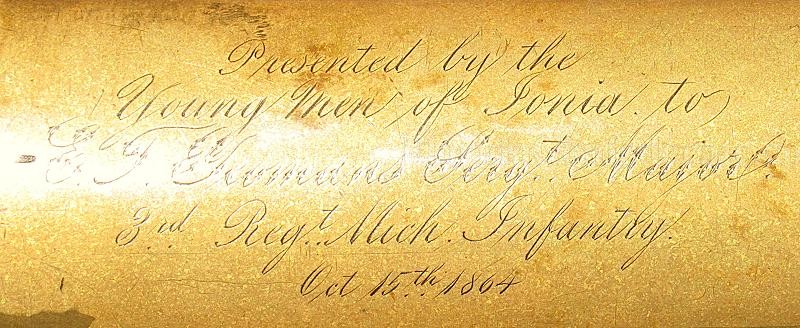 Presented by the
Young Men of Ionia to
E. T. Yeomans Sergt. Major.
3rd Regt. Mich. Infantry.
Oct 15th. 1864